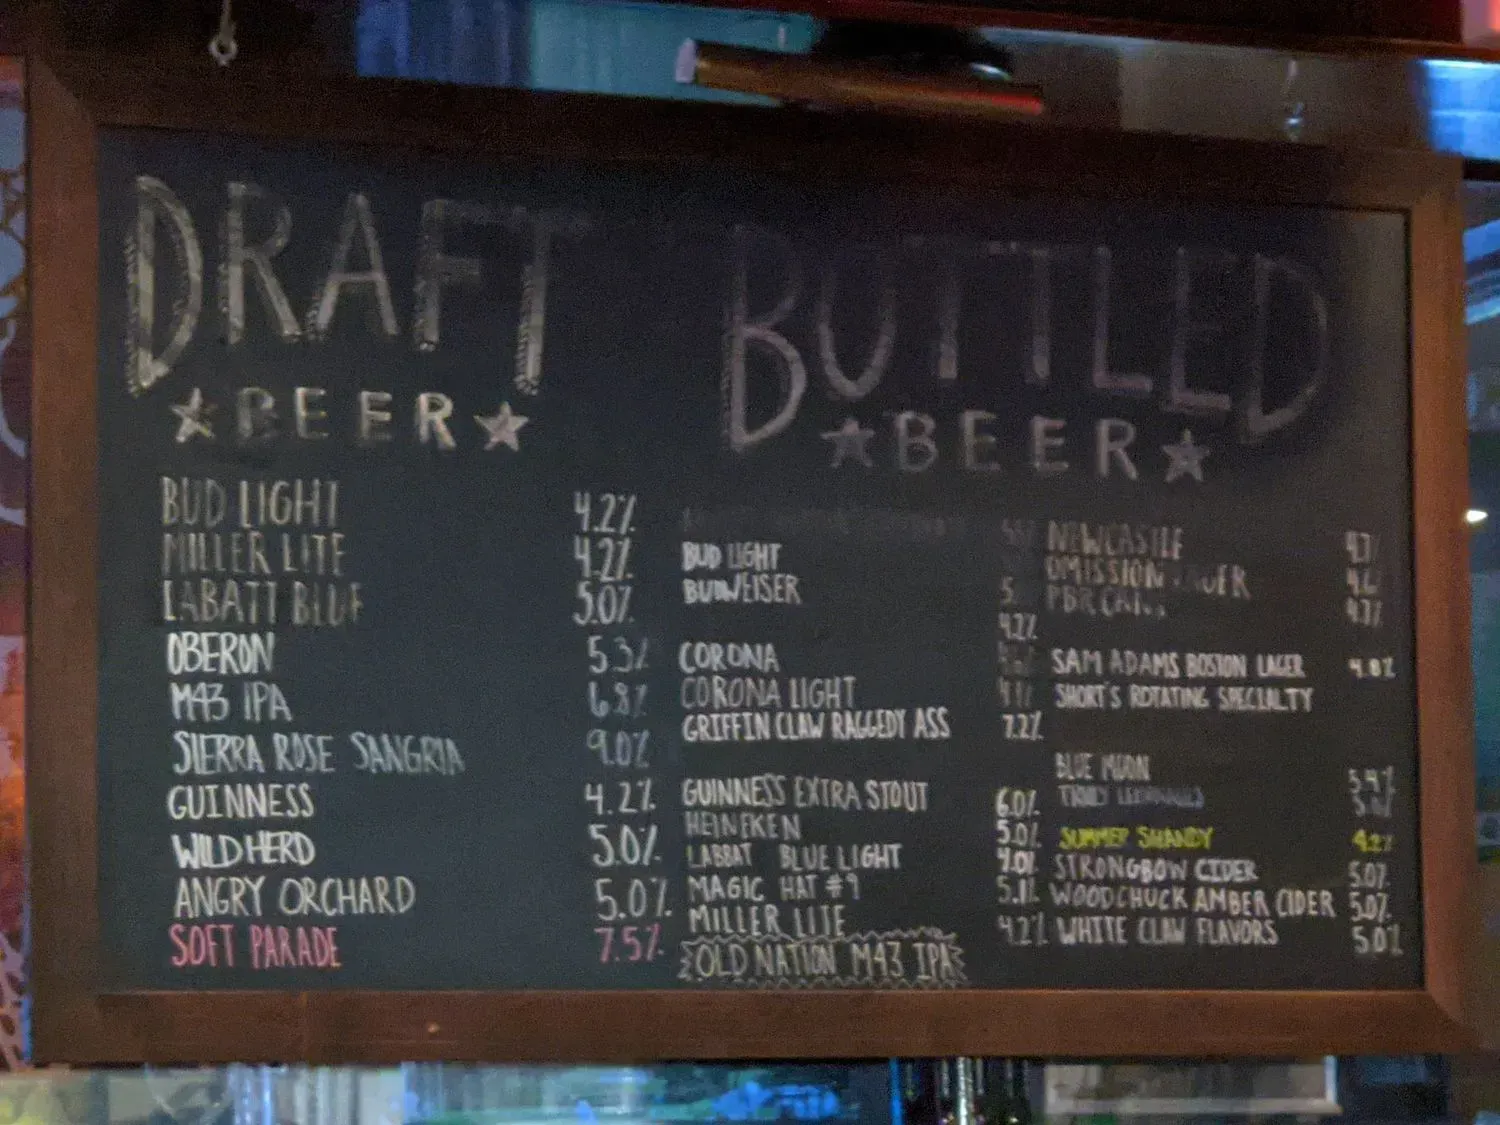 DRAFT
★ BEER ★
BUD LIGHT 4.2%
MILLER LITE 4.2%
LABATT BLUE 5.0%
OBERON 5.3%
M43 IPA 6.8%
SIERRA ROSE SANGRIA 9.0%
GUINNESS 4.2%
WILD HERD 5.0%
ANGRY ORCHARD 5.0%
SOFT PARADE 7.5%
BOTTLED
★ BEER ★
BUD LIGHT
BUDWEISER 5.
4.2%
CORONA
CORONA LIGHT
GRIFFIN CLAW RAGGEDY ASS 7.2%
GUINNESS EXTRA STOUT 6.0%
HEINEKEN 5.0%
LABBAT BLUE LIGHT 4.0%
MAGIC HAT #9 5.1%
MILLER LITE 4.2%
OLD NATION M43 IPA
NEWCASTLE 4.7%
OMISSION LAGER 4.6
PBR CANS 4.7%
SAM ADAMS BOSTON LAGER 4.8%
SHORT'S ROTATING SPECIALTY
BLUE MOON 5.4%
TRULY 5.0%
SUMMER SHANDY 4.2%
STRONGBOW CIDER 5.0%
WOODCHUCK AMBER CIDER 5.0%
WHITE CLAW FLAVORS 5.0%